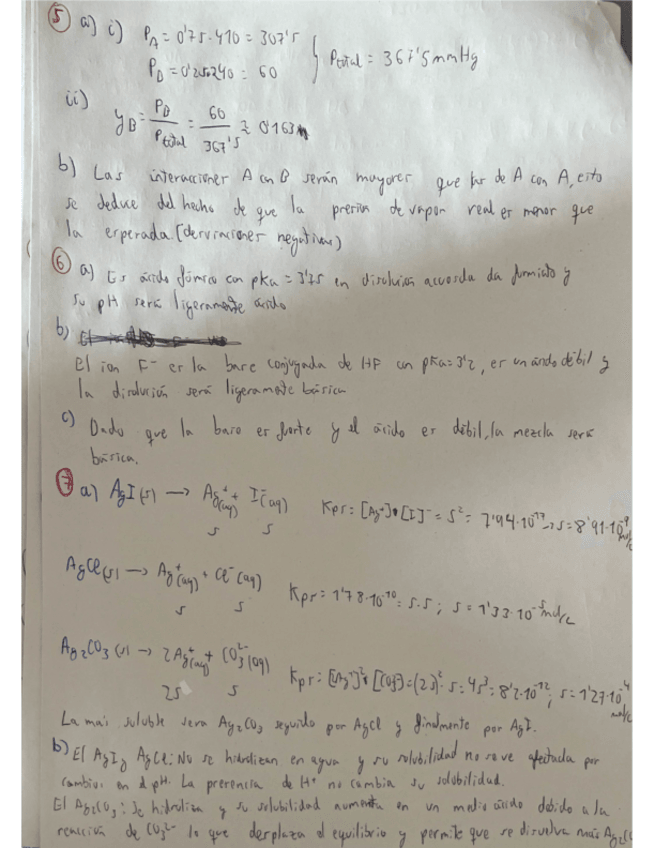 5 a) i) P_A = 0'75·410 = 307'5
P_B = 0'25·240 = 60
P_total = 367'5 mmHg
ii) y_B = P_B / P_total = 60 / 367'5 ≈ 0'163
b) Las interacciones A con B serán mayores que las de A con A, esto
se deduce del hecho de que la presión de vapor real es menor que
la esperada (desviaciones negativas)
6 a) Es ácido fórmico con pKa = 3'75 en disolución acuosa da formiato y
su pH será ligeramente ácido
b) El
El ion F⁻ es la base conjugada de HF con pKa = 3'2, es un ácido débil y
la disolución será ligeramente básica
c) Dado que la base es fuerte y el ácido es débil, la mezcla será
básica.
7 a) AgI(s) → Ag⁺(aq) + I⁻(aq) Kps = [Ag⁺]·[I]⁻ = s² = 7'94·10⁻¹⁷ → s = 8'91·10⁻⁹ mol/L
s s
AgCl(s) → Ag⁺(aq) + Cl⁻(aq) Kps = 1'78·10⁻¹⁰ = s·s ; s = 1'33·10⁻⁵ mol/L
s s
Ag₂CO₃(s) → 2Ag⁺(aq) + CO₃²⁻(aq) Kps = [Ag⁺]²·[CO₃²⁻] = (2s)²·s = 4s³ = 8'2·10⁻¹² ; s = 1'27·10⁻⁴ mol/L
2s s
La más soluble será Ag₂CO₃ seguido por AgCl y finalmente por AgI.
b) El AgI y AgCl: No se hidrolizan en agua y su solubilidad no se ve afectada por
cambios en el pH. La presencia de H⁺ no cambia su solubilidad.
El Ag₂CO₃: Se hidroliza y su solubilidad aumenta en un medio ácido debido a la
reacción de CO₃²⁻ lo que desplaza el equilibrio y permite que se disuelva más